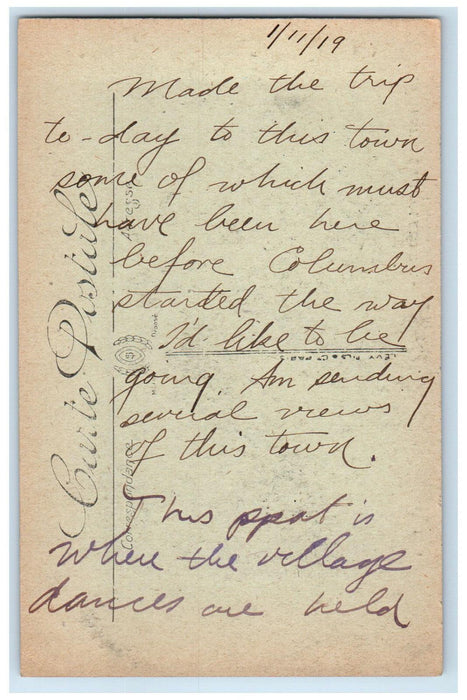 1/11/19
Made the trip
to-day to this town
some of which must
have been here
before Columbus
started the way
I'd like to be
going. Am sending
several views
of this town.
This spot is
where the village
dances are held
Carte Postale
Correspondance
Adresse